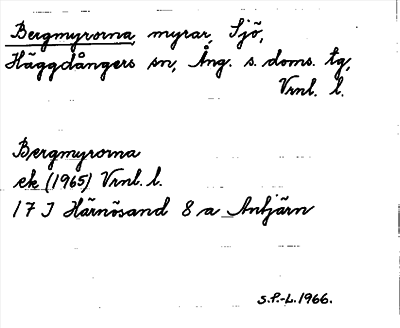 Bergmyrorna, myrar, Sjö,
Häggdångers sn, Ång. s. doms. tg,
Vrnl. l.
Bergmyrorna
ek (1965) Vrnl. l.
17 I Härnösand 8 a Antjärn
S.P.-L. 1966.